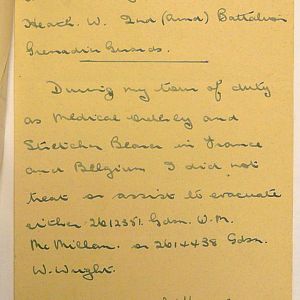 Heach. W. 2nd (Armd) Battalion
Grenadier Guards.
During my tour of duty
as Medical Orderly and
Stretcher Bearer in France
and Belgium I did not
treat or assist to evacuate
either 2612351. Gdsn. W.M.
McMillan. or 2614438 Gdsn.
W. Wright.